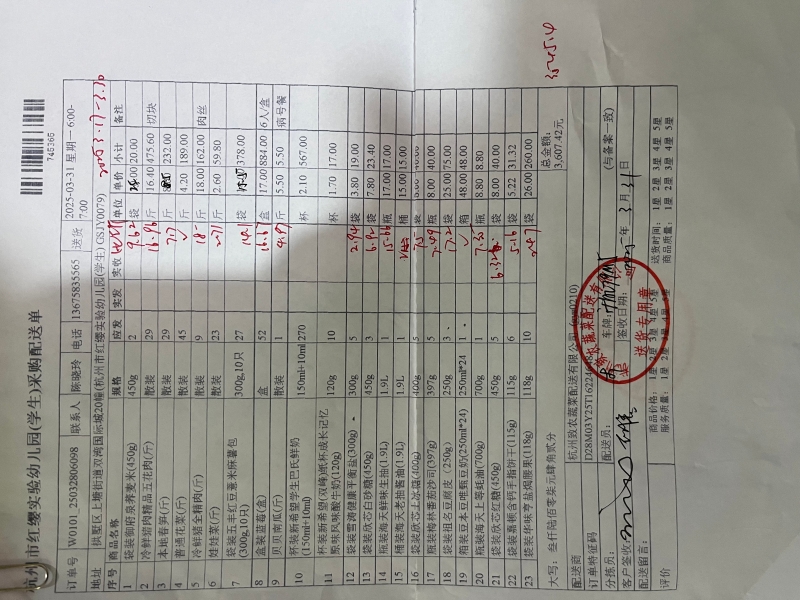 745365
杭州市红缨实验幼儿园(学生)采购配送单
订单号 W0101_25032806098 联系人 陈晓玲 电话 13675835565 送货 2025-03-31 星期一 6:00-7:00
地址 拱墅区上塘街道双湾国际城20幢(杭州市红缨实验幼儿园(学生) G8JY0079) 2025 3.17-3.30
序号 商品名称 规格 应发 实发 实收 单位 单价 小计 备注
1 袋装御府泉荞麦米(450g) 450g 2 9.62 袋 20.00
2 冷鲜猪肉精品五花肉(斤) 散装 29 16.96 斤 16.40 475.60 切块
3 本地春笋(斤) 散装 29 7.7 斤 232.00
4 普通花菜(斤) 散装 45 斤 4.20 189.00
5 冷鲜猪全精肉(斤) 散装 9 18- 斤 18.00 162.00 肉丝
6 娃娃菜(斤) 散装 23 斤 2.60 59.80
7 袋装五丰红豆薏米麻薯包(300g,10只) 300g,10只 27 袋 378.00
8 盒装蓝莓(盒) 盒 52 盒 17.00 884.00 6人/盒
9 贝贝南瓜(斤) 散装 1 斤 5.50 5.50 病号餐
10 杯装新希望学生巴氏鲜奶(150ml+10ml) 150ml+10ml 270 杯 2.10 567.00
11 杯装新希望(双峰)纸杯成长记忆原味风味酸牛奶(120g) 120g 10 杯 1.70 17.00
12 袋装雪涛健康平衡盐(300g) 300g 5 2.94 袋 3.80 19.00
13 袋装欣芯白砂糖(450g) 450g 3 6.92 袋 7.80 23.40
14 瓶装海天鲜味生抽(1.9L) 1.9L 1 瓶 17.00 17.00
15 桶装海天老抽酱油(1.9L) 1.9L 1 桶 15.00 15.00
16 袋装欣芯土冰糖(400g) 400g 5 7.5 袋 8.00 40.00
17 瓶装憨林番茄沙司(397g) 397g 5 7.49 瓶 8.00 40.00
18 袋装祖名豆腐皮(250g) 250g 3 袋 25.00 75.00
19 箱装豆本豆唯甄豆奶(250ml*24) 250ml*24 1 箱 48.00 48.00
20 瓶装海天上等蚝油(700g) 700g 1 瓶 8.80 8.80
21 袋装欣芯红糖(450g) 450g 5 袋 8.00 40.00
22 袋装嘉顿含钙手指饼干(115g) 115g 6 5.16 袋 5.22 31.32
23 袋装华味亨盐焗腰果(118g) 118g 10 24.7 袋 26.00 260.00
大写：叁仟陆佰零柒元肆角贰分 总金额：3,607.42元
3545.14
配送商 杭州致农蔬菜配送有限公司
订单特征码
分拣员： 配送员： 车牌： (与备案一致)
客户签收： 签收日期： 2025年 3月 31日
配送留言：
评价 商品价格：1星 2星 3星 4星 5星 送货时间：1星 2星 3星 4星 5星
服务质量：1星 2星 3星 4星 5星 商品质量：1星 2星 3星 4星 5星
送货专用章